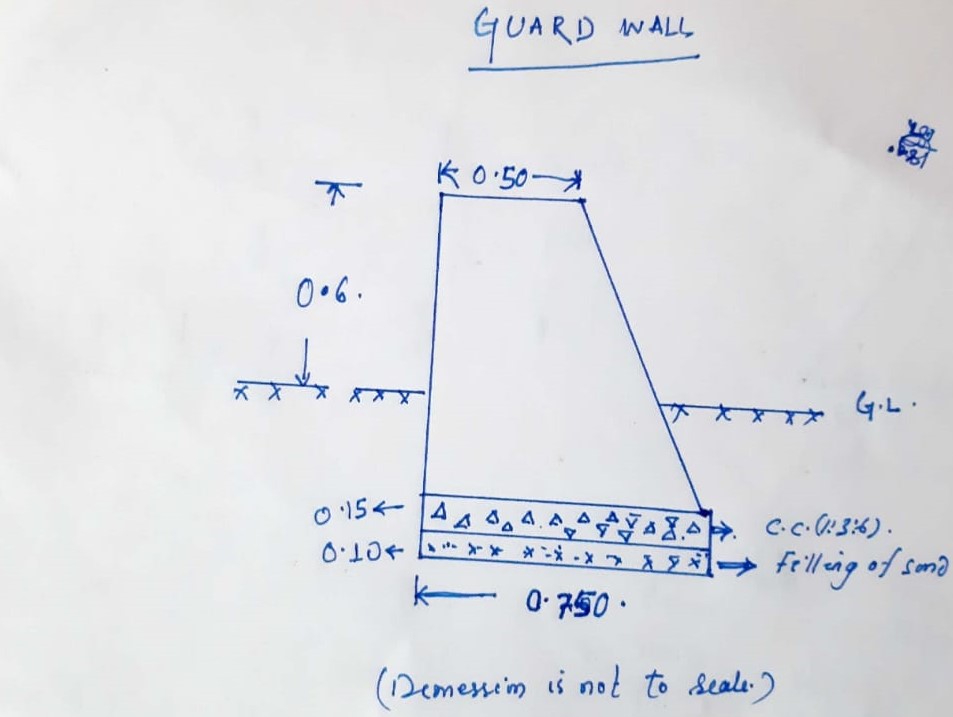 GUARD WALL
0.50
0.6.
G.L.
0.15
C.C.(1:3:6).
0.10
Filling of sand
0.750.
(Demession is not to Scale.)